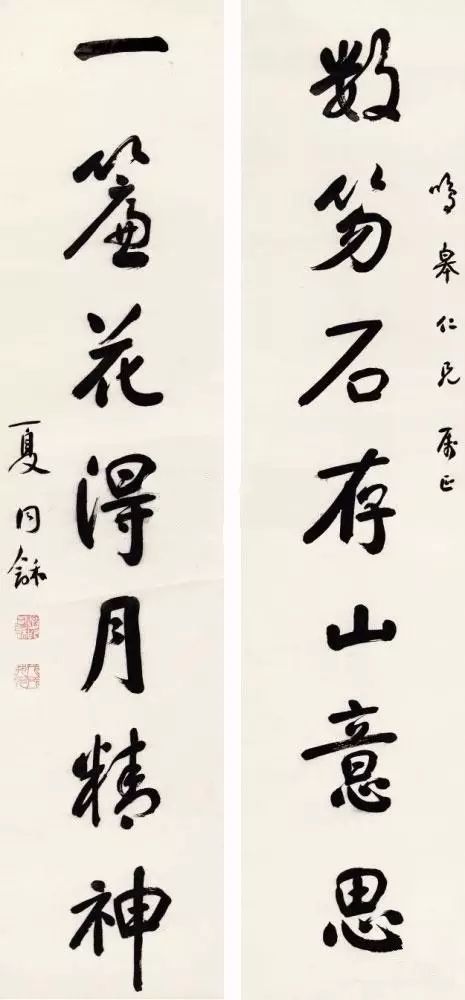 鳴皋仁兄属正
数笏石存山意思
一簾花得月精神
夏同龢